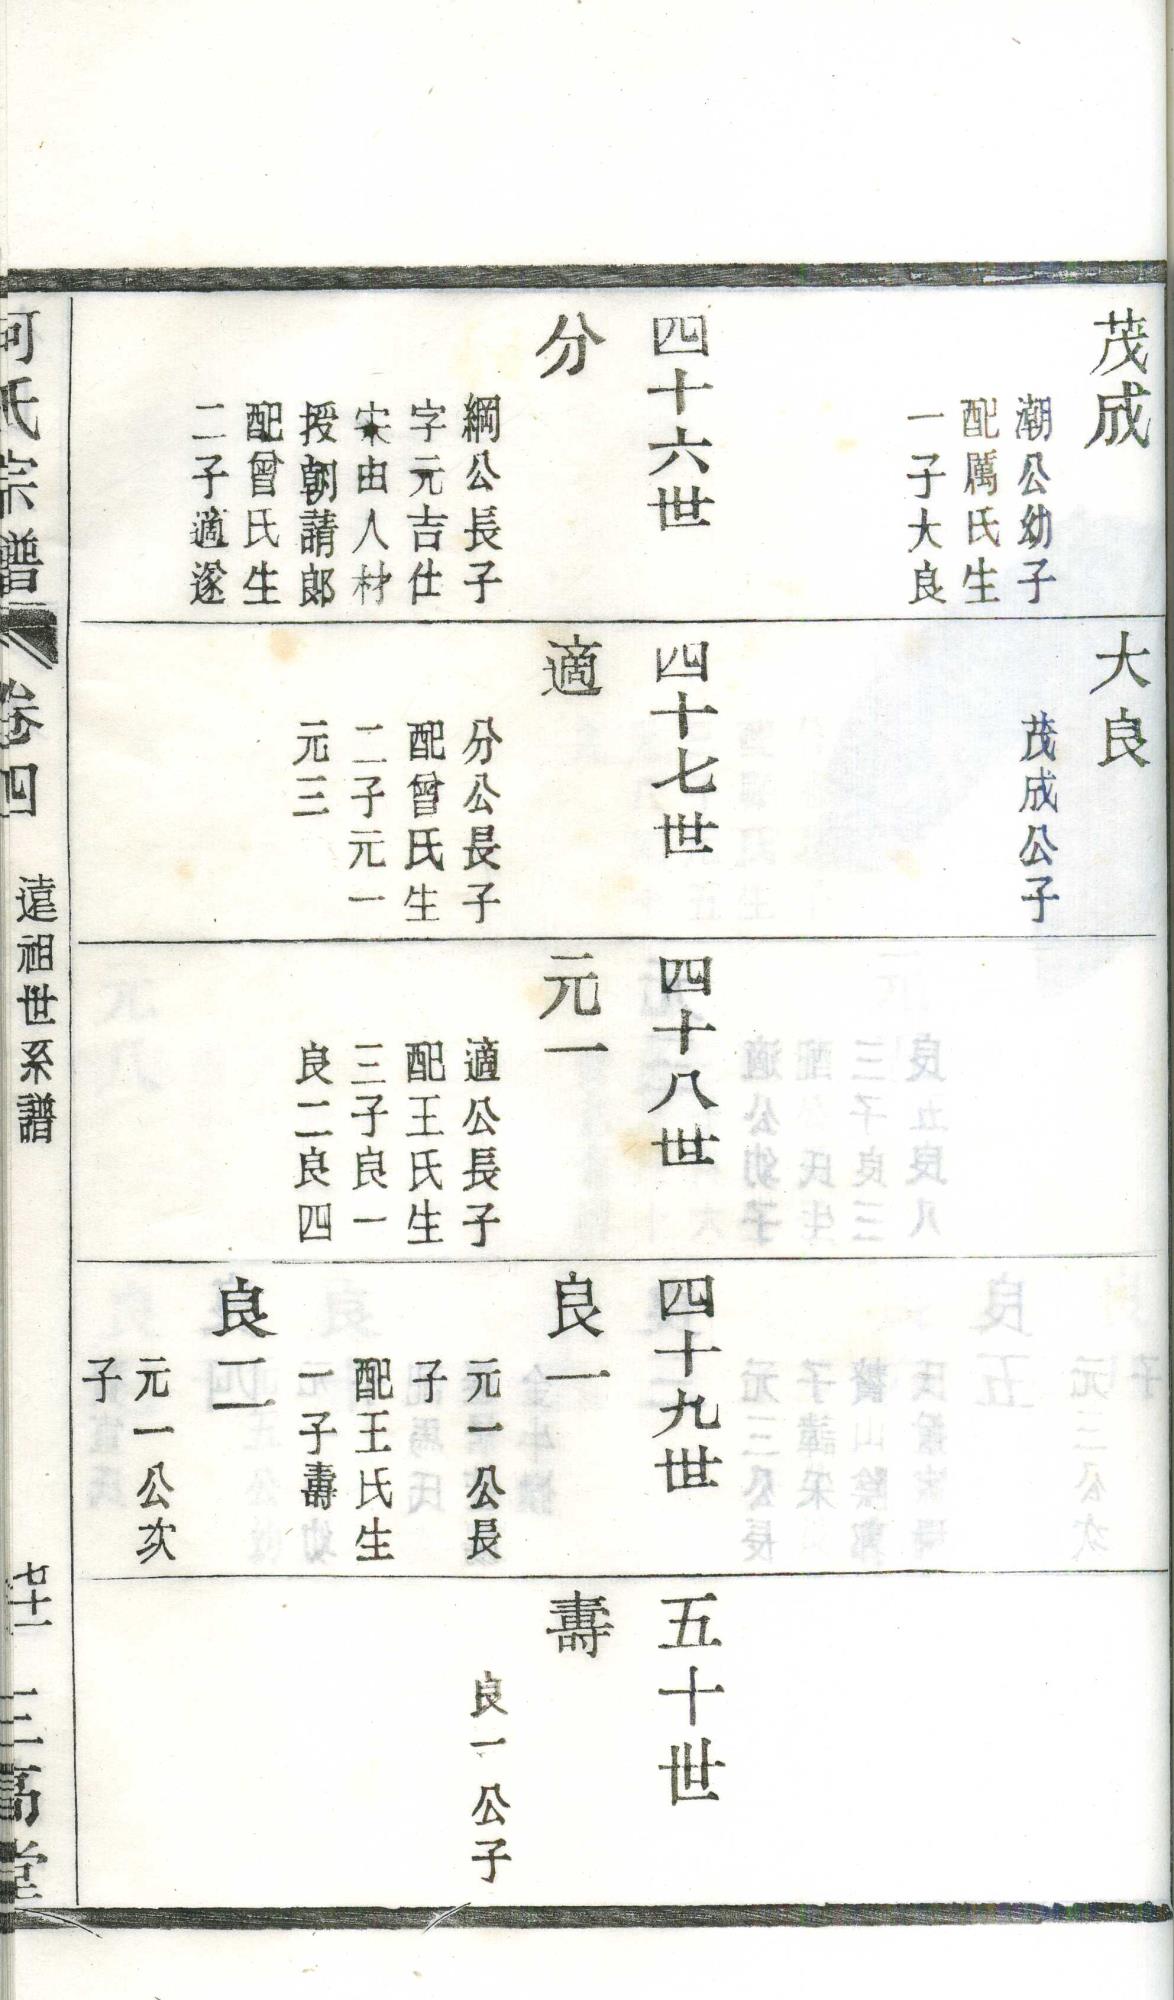 茂成
潮公幼子
配厲氏生
一子大良
四十六世
分
綱公長子
字元吉仕
宋由人材
授朝請郎
配曾氏生
二子適遂
大良
茂成公子
四十七世
適
分公長子
配曾氏生
二子元一
元三
四十八世
元一
適公長子
配王氏生
三子良一
良二良四
四十九世
良一
元一公長
子
配王氏生
一子壽
良二
元一公次
子
五十世
壽
良一公子
何氏宗譜
卷四
遠祖世系譜
七十一
三高堂